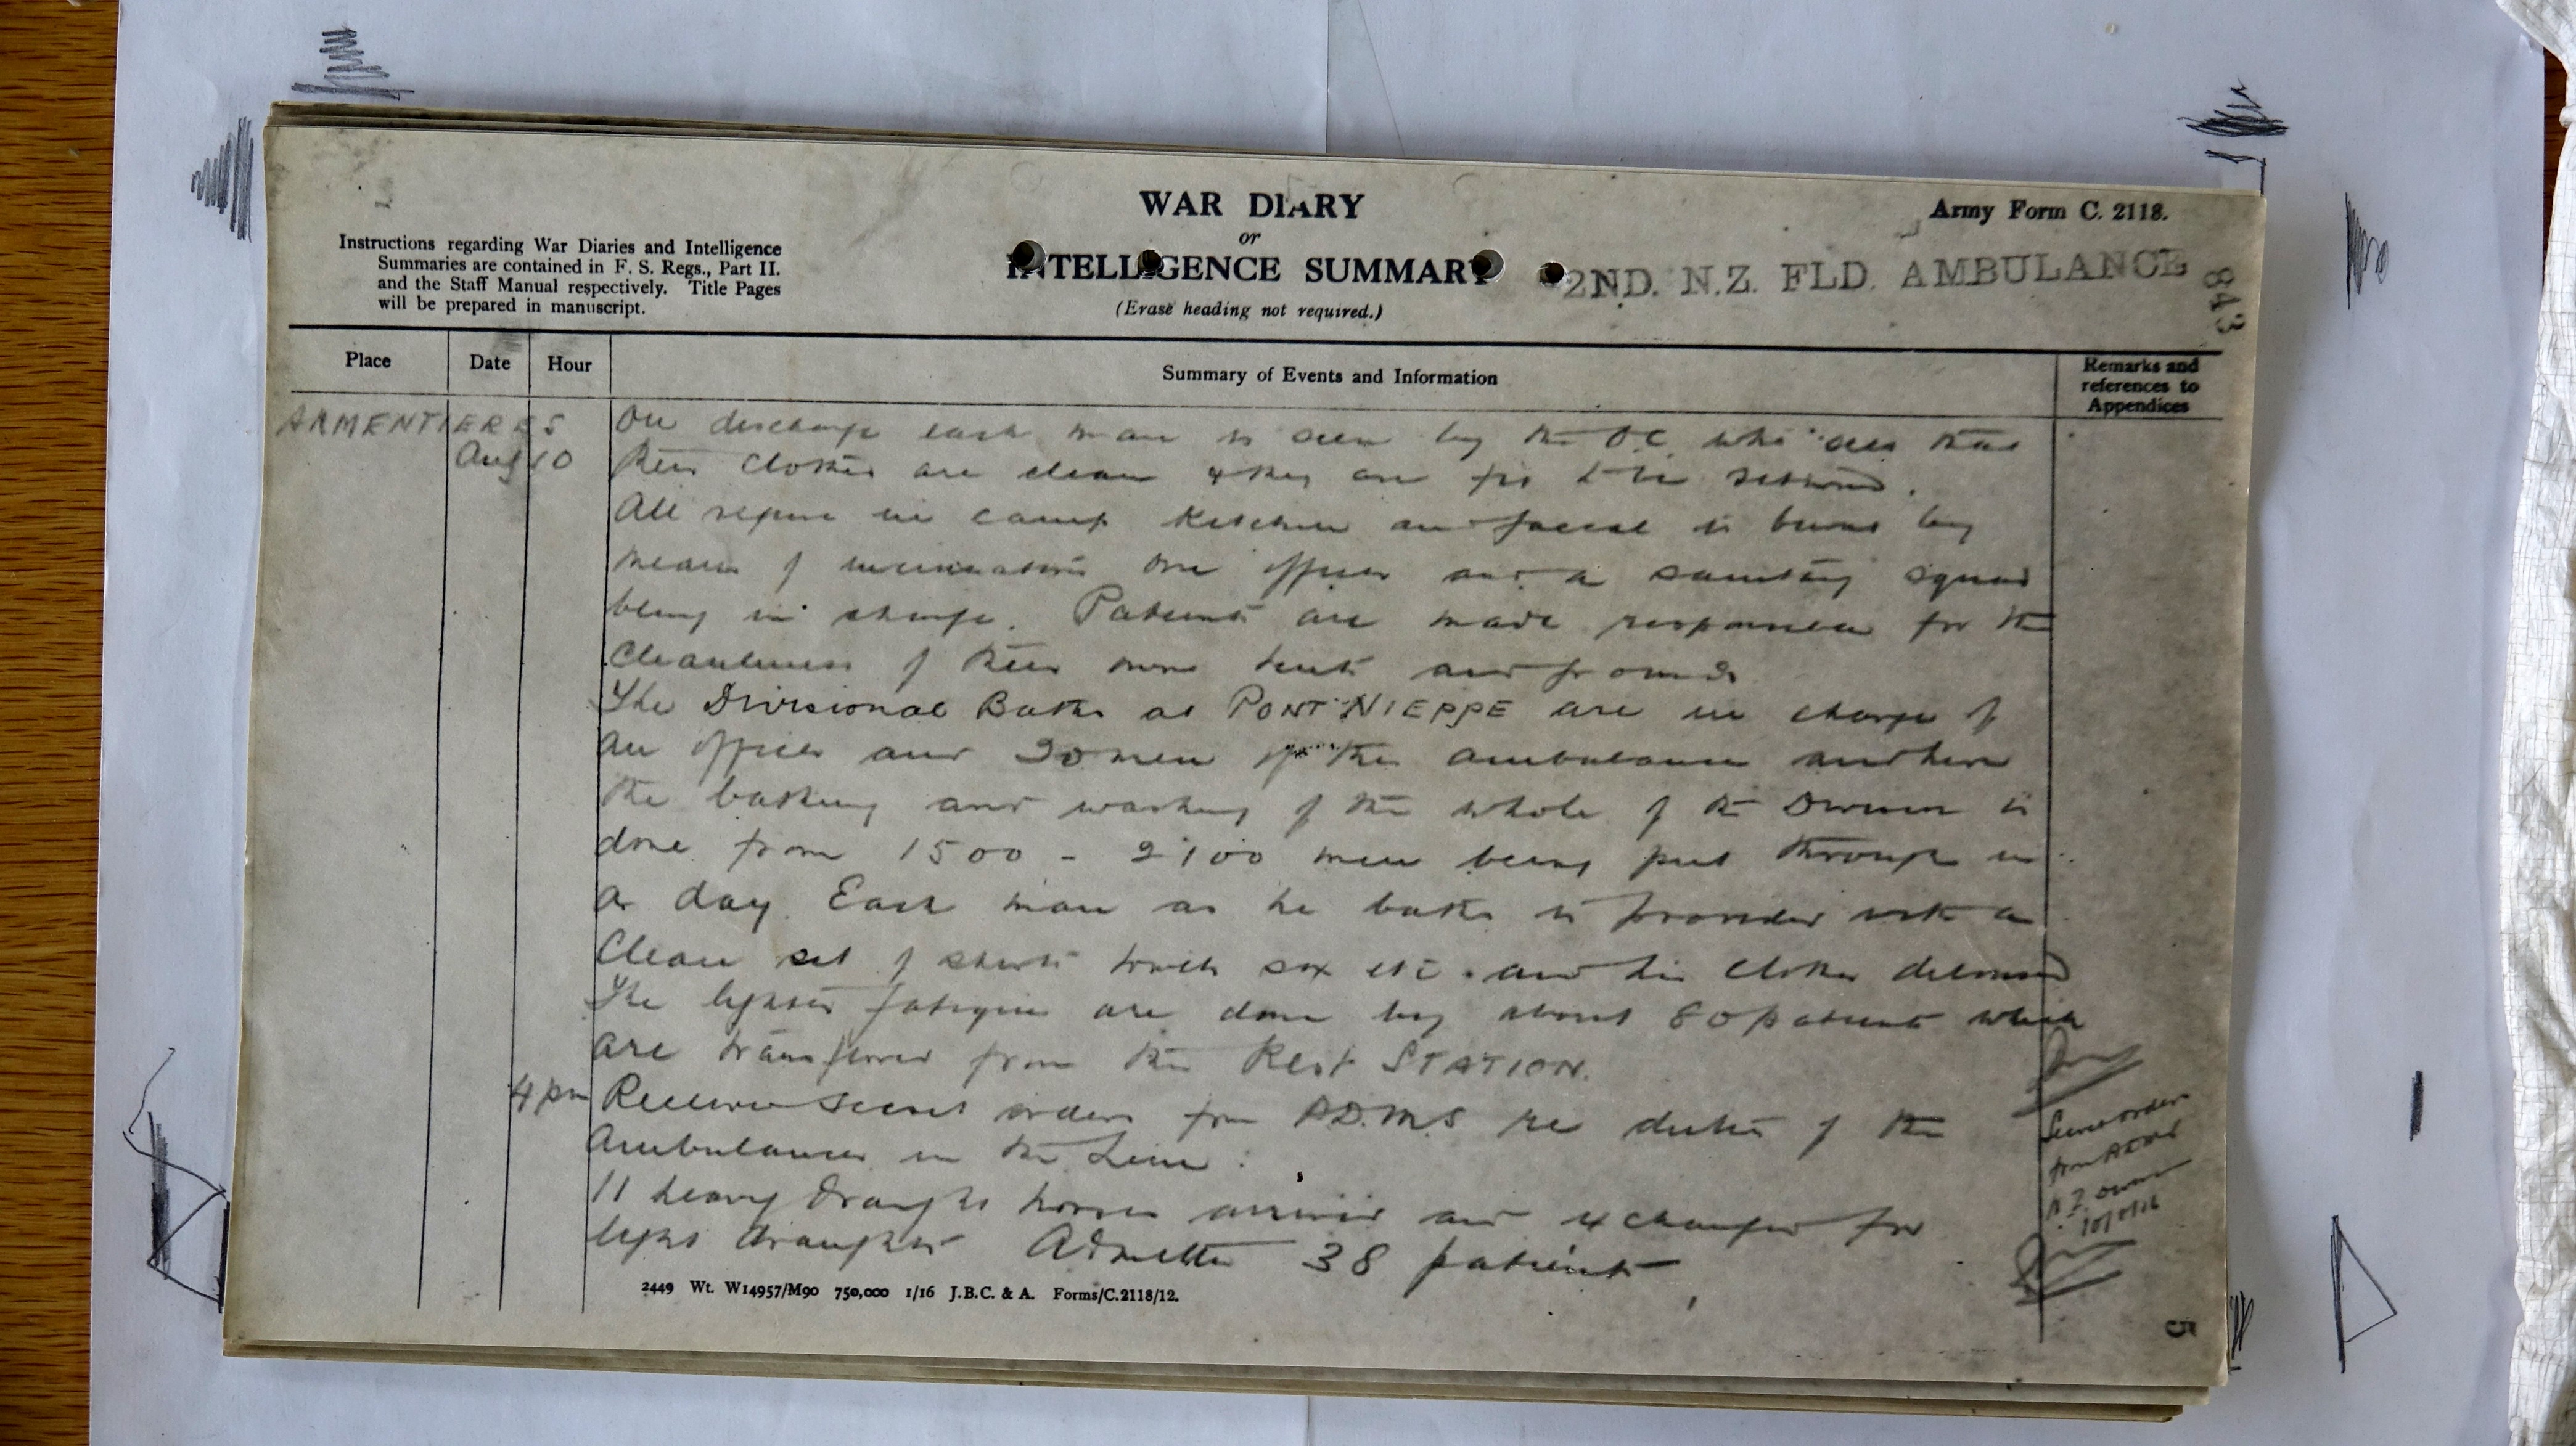 WAR DIARY
or
INTELLIGENCE SUMMARY
(Erase heading not required.)
Army Form C. 2118.
2ND. N.Z. FLD. AMBULANCE
843
Instructions regarding War Diaries and Intelligence
Summaries are contained in F. S. Regs., Part II.
and the Staff Manual respectively. Title Pages
will be prepared in manuscript.
Place Date Hour Summary of Events and Information Remarks and references to Appendices
ARMENTIERES
Aug 10
On discharge each man is seen by the O.C. who sees that
their clothes are clean & they are fit to be returned.
All refuse in camp kitchen and faecal is burnt by
means of incinerators one officer and a sanitary squad
being in charge. Patients are made responsible for the
cleanliness of their own tents and grounds
The Divisional Baths at PONT NIEPPE are in charge of
an officer and 20 men of the ambulance and here
the bathing and washing of the whole of the Division is
done from 1500 - 2100 men being put through in
a day. Each man as he baths is provided with a
clean set of shirts towels sox etc. and his clothes
The lighter fatigues are done by about 80 patients which
are transferred from the Rest STATION.
4 pm Received secret orders from A.D.M.S re duties of the
Ambulances in the Line.
11 heavy draught horses arrived and exchanged for
light draughts Admitted 38 patients
Secret order
from ADMS
N.Z.
10/8/16
2449 Wt. W14957/M90 750,000 1/16 J.B.C. & A. Forms/C.2118/12.
5